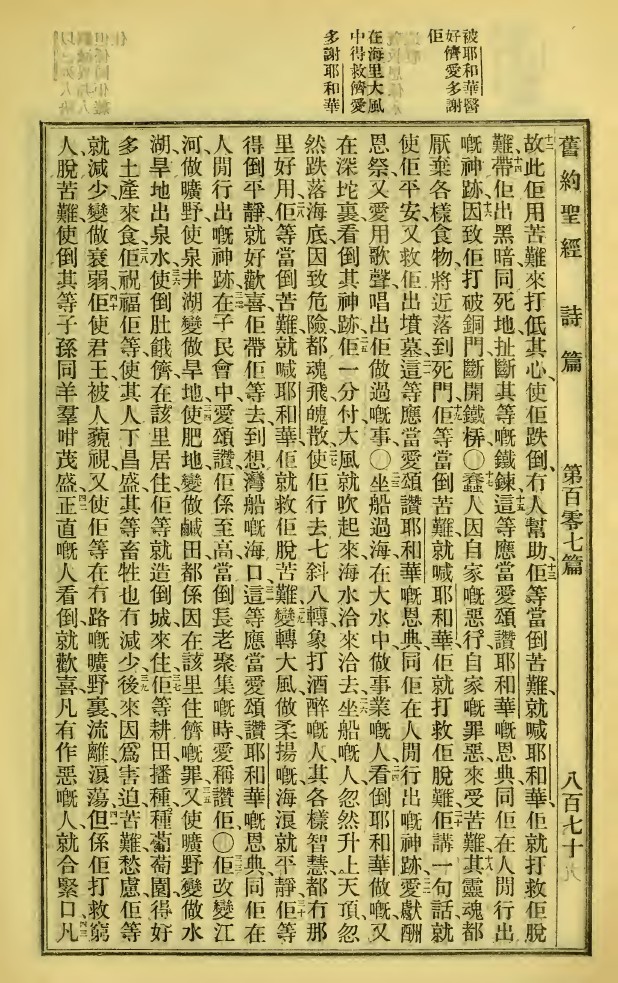 被耶和華醫
好儕愛多謝
佢
在海里大風
中得救儕愛
多謝耶和華
舊約聖經 詩篇 第百零七篇 八百七十九
十二故此佢用苦難來打低其心、使佢跌倒、冇人幫助、十三佢等當倒苦難、就喊耶和華、佢就打救佢脫
難、十四帶佢出黑暗同死地、扯斷其等嘅鐵鍊、十五這等應當愛頌讚耶和華嘅恩典、同佢在人閒行出
嘅神跡、十六因致佢打破銅門、斷開鐵〇十七蠢人因自家嘅惡行、自家嘅罪惡、來受苦難、十八其靈魂都
厭棄各樣食物、將近落到死門、十九佢等當倒苦難、就喊耶和華、佢就打救佢脫難、二十佢講一句話就
使佢平安、又救佢出墳墓、二一這等應當愛頌讚耶和華嘅恩典、同佢在人閒行出嘅神跡、二二愛獻酬
恩祭、又愛用歌聲唱出佢做過嘅事〇二三坐船過海、在大水中做事業嘅人、二四看倒耶和華做嘅、又
在深坨裏看倒其神跡、二五佢一分付、大風就吹起來、海水洽來洽去、二六坐船嘅人、忽然升上天頂、忽
然跌落海底、因致危險、都魂飛魄散、二七使佢行去七斜八轉、象打酒醉嘅人、其各樣智慧、都冇那
里好用、二八佢等當倒苦難、就喊耶和華、佢就救佢脫苦難、二九變轉大風做柔揚嘅、海浪就平靜、三十佢等
得倒平靜、就好歡喜、佢帶佢等去到想灣船嘅海口、三一這等應當愛頌讚耶和華嘅恩典、同佢在
人閒行出嘅神跡、三二在子民會中、愛頌讚佢係至高、當倒長老聚集嘅時、愛稱讚佢〇三三佢改變江
河做曠野、使泉井湖變做旱地、三四使肥地變做鹹田、都係因在該里住儕嘅罪、三五又使曠野變做水
湖、旱地出泉水、三六使倒肚餓儕、在該里居住、佢等就造倒城來住、三七佢等耕田播種、種葡萄園、得好
多土產來食、三八佢祝福佢等、使其人丁昌盛、其等畜牲也冇減少、三九後來因爲害迫苦難愁慮、佢等
就減少、變做衰弱、四十佢使君王被人藐視、又使佢等在冇路嘅曠野裏、流離浪蕩、四一但係佢打救窮
人脫苦難、使倒其等子孫、同羊羣咁茂盛、四二正直嘅人看倒就歡喜、凡有作惡嘅人、就合緊口、四三凡